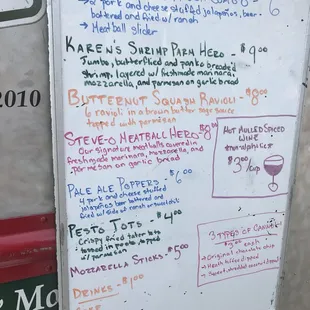 pork and cheese stuffed jalapeños, beer
battered and fried w/ ranch
→ Meatball slider
Karen's Shrimp Parm Hero - $9.00
Jumbo, butterflied and panko breaded
shrimp layered w/ freshmade marinara,
mozzarella, and parmesan on garlic bread
Butternut Squash Ravioli - $8.00
6 ravioli in a brown butter sage sauce
topped with parmesan
Steve-O Meatball Hero - $8.00
Our signature meatballs covered in
freshmade marinara, mozzarella, and
parmesan on garlic bread
Pale Ale Poppers - $6.00
4 pork and cheese stuffed
jalapeños beer battered and
fried w/ side of ranch
Pesto Tots - $4.00
Crispy fried tater tots
tossed in pesto, topped
w/ parmesan
Mozzarella Sticks - $5.00
Drinks - $1.00
Hot Mulled Spiced
Wine
$3.00/cup
3 Types of
each
2010
Mo